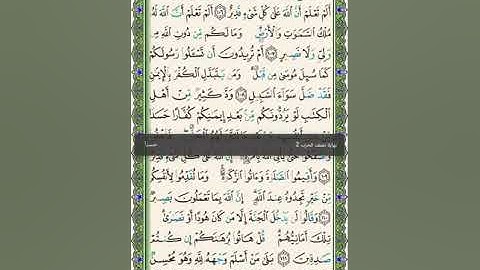 أَلَمْ تَعْلَمْ أَنَّ ٱللَّهَ عَلَىٰ كُلِّ شَىْءٍ قَدِيرٌ ١٠٦ أَلَمْ تَعْلَمْ أَنَّ ٱللَّهَ لَهُۥ
مُلْكُ ٱلسَّمَٰوَٰتِ وَٱلْأَرْضِ ۗ وَمَا لَكُم مِّن دُونِ ٱللَّهِ مِن
وَلِىٍّ وَلَا نَصِيرٍ ١٠٧ أَمْ تُرِيدُونَ أَن تَسْـَٔلُوا۟ رَسُولَكُمْ
كَمَا سُئِلَ مُوسَىٰ مِن قَبْلُ ۗ وَمَن يَتَبَدَّلِ ٱلْكُفْرَ بِٱلْإِيمَٰنِ
فَقَدْ ضَلَّ سَوَآءَ ٱلسَّبِيلِ ١٠٨ وَدَّ كَثِيرٌ مِّنْ أَهْلِ
ٱلْكِتَٰبِ لَوْ يَرُدُّونَكُم مِّنۢ بَعْدِ إِيمَٰنِكُمْ كُفَّارًا حَسَدًا
نهاية نصف الحزب 2 حسنا
وَٱصْفَحُوا۟ حَتَّىٰ يَأْتِىَ ٱللَّهُ إِنَّ ٱللَّهَ عَلَىٰ كُلِّ شَىْءٍ قَدِيرٌ
١٠٩ وَأَقِيمُوا۟ ٱلصَّلَوٰةَ وَءَاتُوا۟ ٱلزَّكَوٰةَ ۚ وَمَا تُقَدِّمُوا۟ لِأَنفُسِكُم
مِّنْ خَيْرٍ تَجِدُوهُ عِندَ ٱللَّهِ ۗ إِنَّ ٱللَّهَ بِمَا تَعْمَلُونَ بَصِيرٌ
١١٠ وَقَالُوا۟ لَن يَدْخُلَ ٱلْجَنَّةَ إِلَّا مَن كَانَ هُودًا أَوْ نَصَٰرَىٰ ۗ
تِلْكَ أَمَانِيُّهُمْ ۗ قُلْ هَاتُوا۟ بُرْهَٰنَكُمْ إِن كُنتُمْ
صَٰدِقِينَ ١١١ بَلَىٰ مَنْ أَسْلَمَ وَجْهَهُۥ لِلَّهِ وَهُوَ مُحْسِنٌ